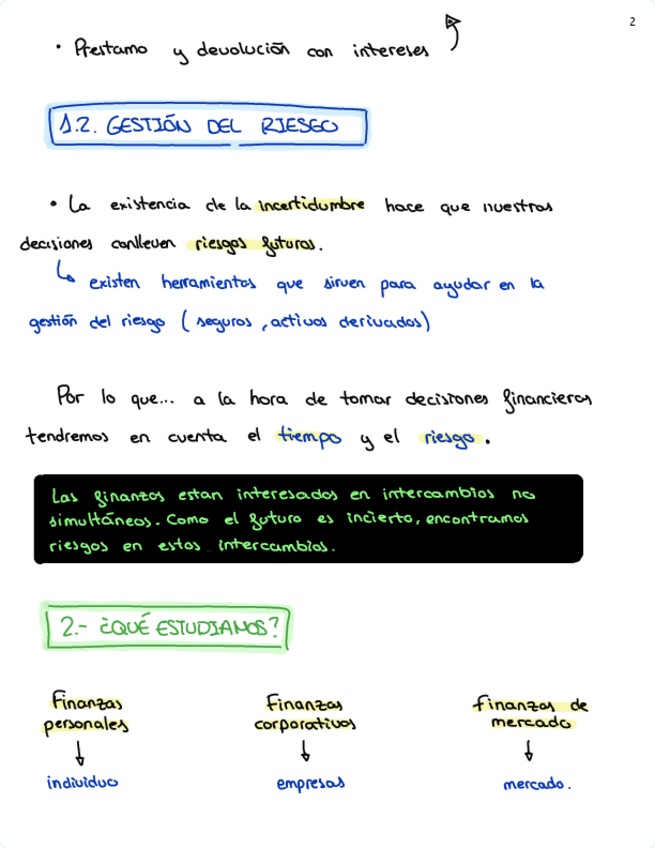 2
• Prestamo y devolución con intereses
1.2. GESTIÓN DEL RIESGO
• La existencia de la incertidumbre hace que nuestras
decisiones conlleven riesgos futuros.
↳ existen herramientas que sirven para ayudar en la
gestión del riesgo ( seguros, activos derivados)
Por lo que... a la hora de tomar decisiones financieras
tendremos en cuenta el tiempo y el riesgo.
Las finanzas estan interesadas en intercambios no
simultáneos. Como el futuro es incierto, encontramos
riesgos en estos intercambios.
2.- ¿QUÉ ESTUDIAMOS?
Finanzas personales
↓
individuo
Finanzas corporativas
↓
empresas
finanzas de mercado
↓
mercado.